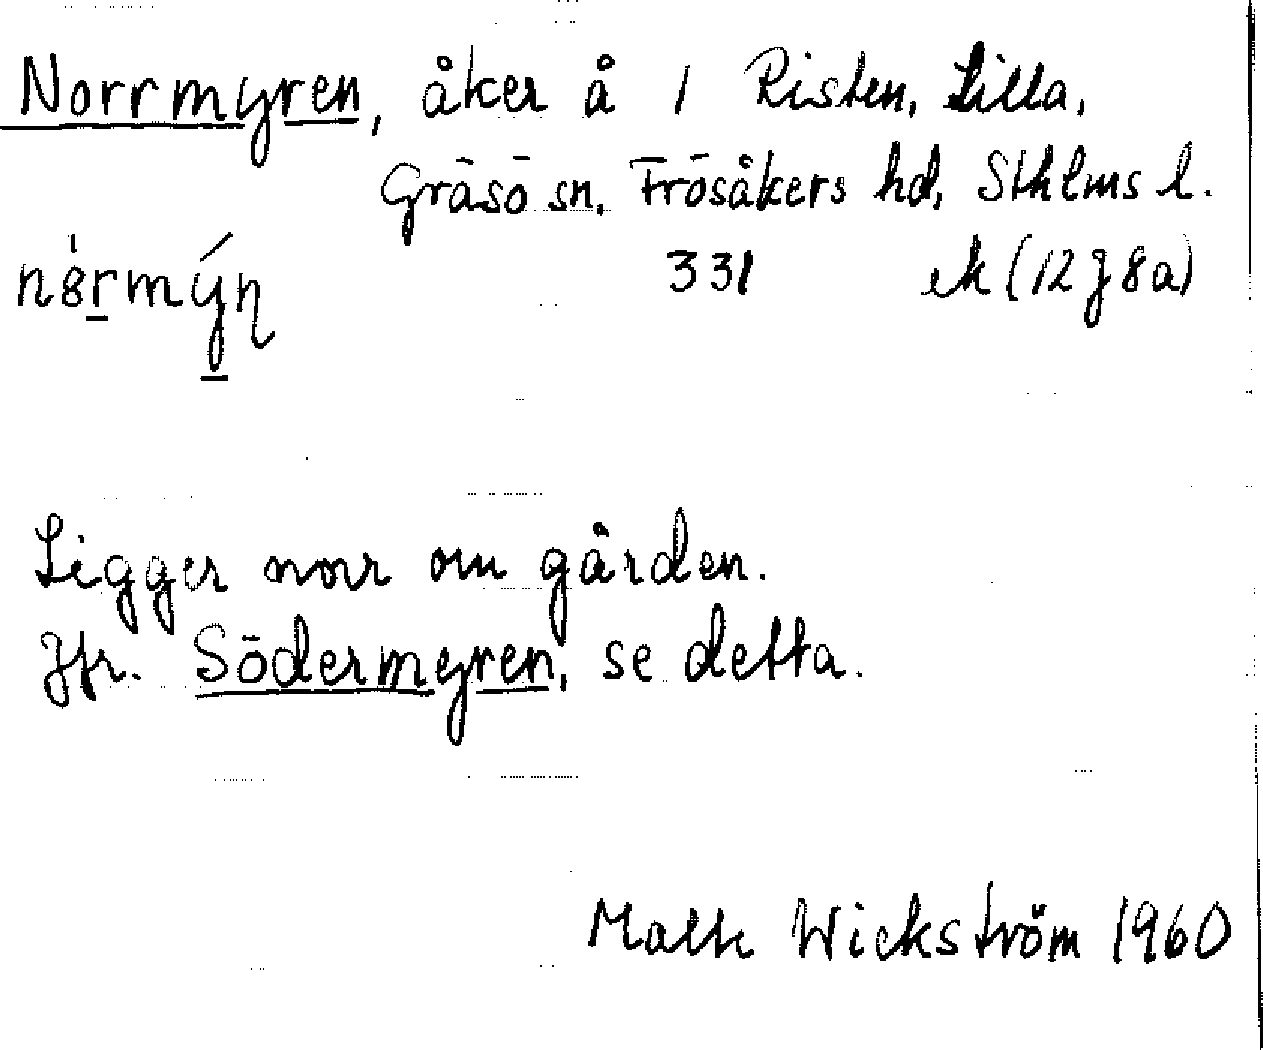 Norrmyren, åker å 1 Risten, Lilla,
Gräsö sn, Frösåkers hd, Sthlms l.
331 ek (12 J 8a)
Ligger norr om gården.
Jfr. Södermyren, se detta.
Wickström 1960